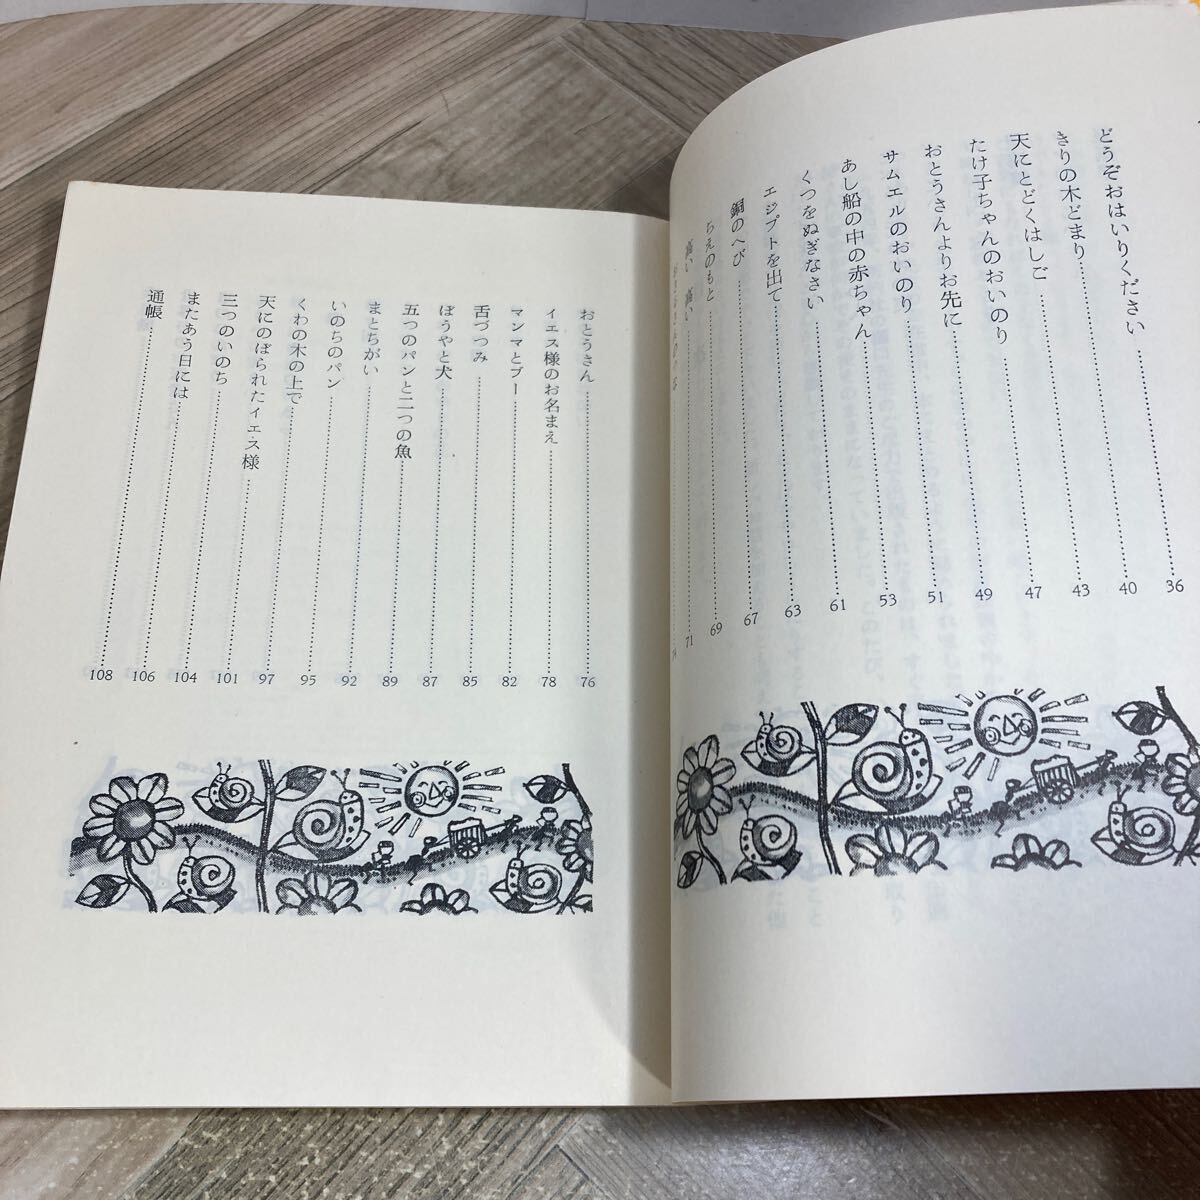 どうぞおはいりください……36
きりの木どまり……40
天にとどくはしご……43
たけ子ちゃんのおいのり……47
おとうさんよりお先に……49
サムエルのおいのり……51
あし船の中の赤ちゃん……53
くつをぬぎなさい……61
エジプトを出て……63
銅のへび……67
ちえのもと……69
高い 高い……71
74
おとうさん……76
イエス様のお名まえ……78
マンマとブー……82
舌づつみ……85
ぼうやと犬……87
五つのパンと二つの魚……89
まとちがい……92
いのちのパン……95
くわの木の上で……97
天にのぼられたイエス様……101
三つのいのち……104
またあう日には……106
通帳……108